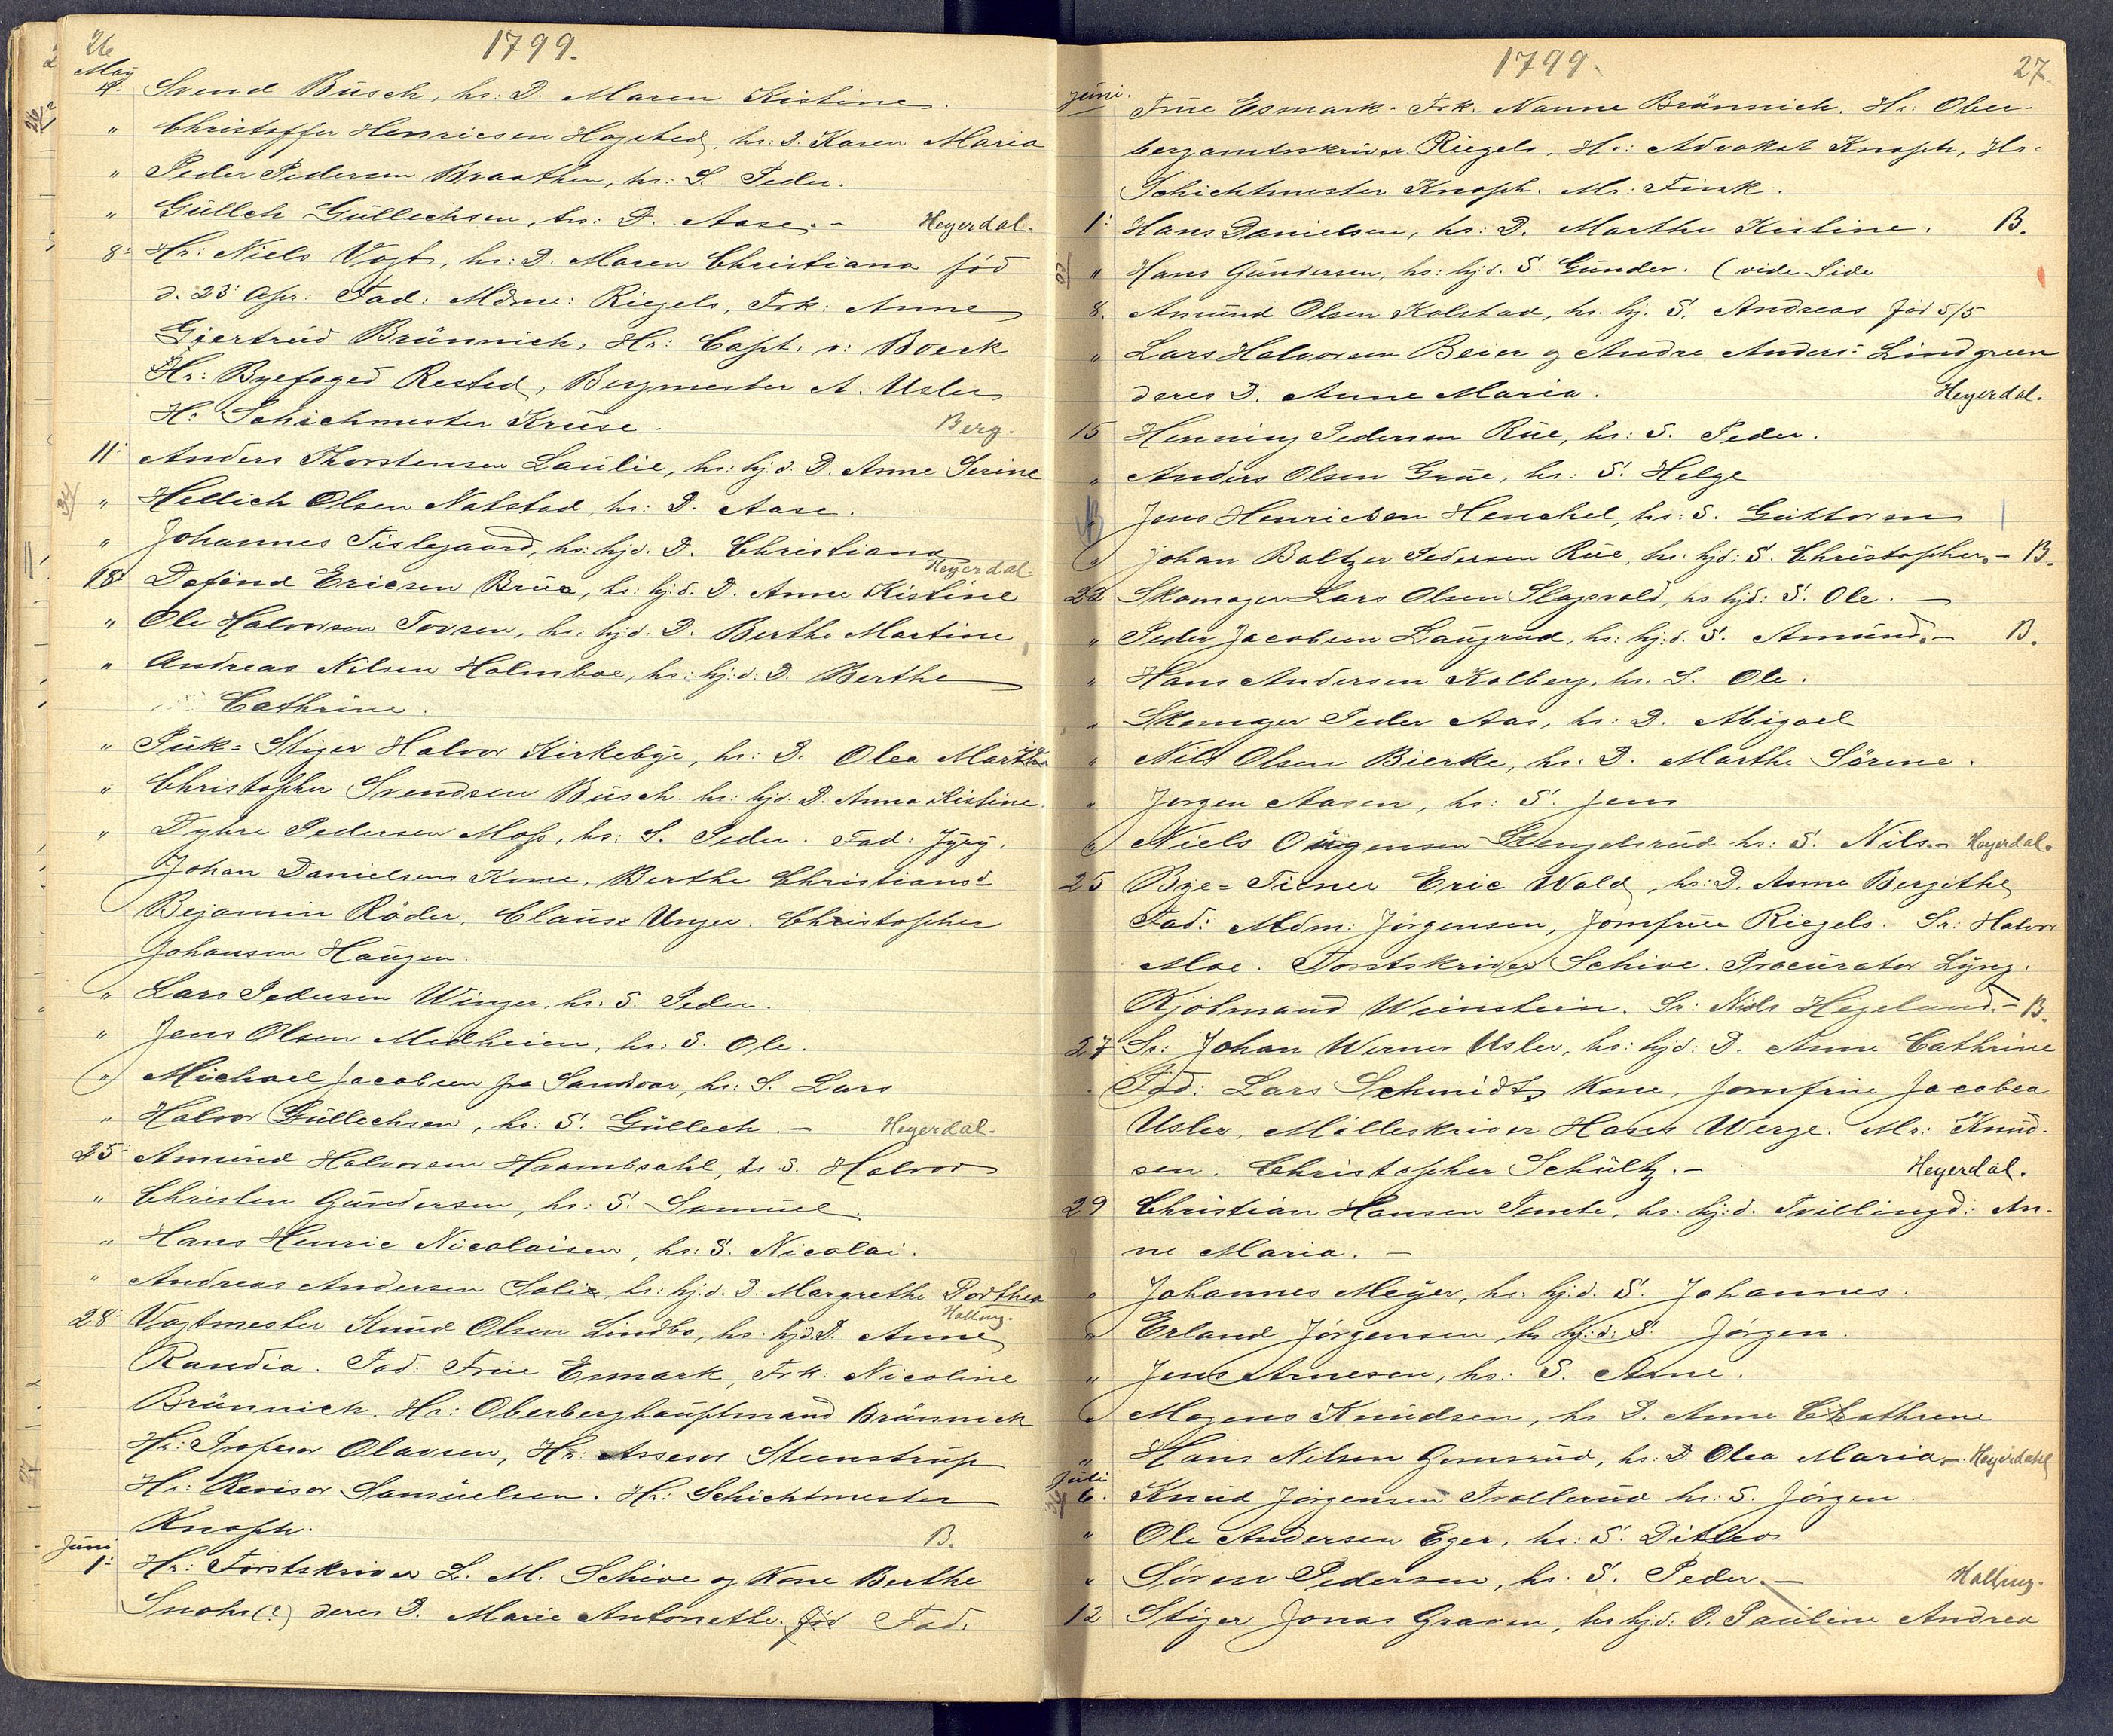 26
1799.
May
4. Svend Büsch, hs: D. Maren Kistine.
" Christoffer Henricsen Hogsted, hs: D. Karen Maria
" Peder Pedersen Braathen, hs: S. Peder.
" Güllch Güllechsen, hs: D. Aase. - Heyerdal.
8: Hr: Niels Vogt, hs: D. Maren Christiana fød
d. 23' Apr: Fad: Mdme: Riegels, Frk: Anne
Giertrüd Brünnich, Hr: Capt. v: Boeck
Hr: Byefoged Rested, Bergmester A. Usler
Hr Schichmester Krüse. Berg.
11: Anders Thorstensen Laülie, hs: hj: d. D. Anne Serine
" Hellich Olsen Natstad, hs: D. Aase.
" Johannes Tislegaard, hs: hjd: D. Christiana
Heyerdal.
18: Dafind Ericsen Brüa, hs: hj: d. D. Anne Kistine
" Ole Halvorsen Tovsen, hs: hj: d. D. Berthe Martine
" Andreas Nilsen Holmboe, hs: hj: d: D. Berthe
Cathrine.
" Pük=Stiger Halvor Kirkebye, hs: D. Olea Marthea
" Christopher Svendsen Büsch. hs: hjd: D. Anna Kistine.
" Dyhre Pedersen Moss, hs: S. Peder. Fad: Jgfr.
Johan Danielsens Kone, Berthe Christiansd
Bejamin Röder, Claus Unger. Christopher
Johansen Haügen.
" Lars Pedersen Winger, hs: S. Peder.
" Jens Olsen Midheien, hs: S. Ole.
" Michael Jacobsen fra Sandvær, hs: S. Lars
" Halvor Güllechsen, hs: S. Güllech. - Heyerdal.
25: Amünd Halvorsen Haambsahl, hs. S. Halvor
" Christen Gündersen, hs: S. Samüel.
" Hans Henric Nicolaisen, hs: S. Nicolai.
" Andreas Andersen Solie, hs: hj: d. D: Margrethe Dorthea
Halling.
28: Vagtmester Knüd Olsen Lindbo, hs: hjd D. Anne
Randia. Fad: Früe Esmark, Frk: Nicoline
Brünnich. Hr: Oberberghaüptmand Brünnich
Hr: Profesor Olavsen, Hr: Assesor Steenstrüp
Hr: Revisor Samüelsen. Hr: Schichtmester
Knoph. B.
Juni
1: Hr: Forstskriver L. M. Schive og Kone Berthe
Snohr(?) deres D. Marie Antonethe. fød Fad.
1799.
27.
Juni. Früe Esmark. Frk. Nanne Brünnich. Hr: Ober-
bergamtsskriver Riegels, Hr: Advokat Knoph, Hr.
Schichtmester Knoph. Mr: Fink.
1: Hans Danielsen, hs: D. Marthe Kistine. B.
" Hans Gündersen, hs: hj: d. S. Günder. (vide Side
8. Amünd Olsen Kolstad, hs. hj. S. Andreas fød 5/5
" Lars Halvorsen Beier og Andre Anders: Lindgreen
deres D. Anne Maria. Heyerdal.
15 Henning Pedersen Rüe, hs: S. Peder.
" Anders Olsen Grüe, hs: S. Helge
" Jens Henricsen Henckel, hs: S. Güttorm
" Johan Baltzer Pedersen Rüe, hs. hjd: S. Christopher. - B.
22 Skomager Lars Olsen Slagvold, hs hjd: S. Ole. -
" Peder Jacobsen Laügrüd, hs: hj: d. S. Amünd. - B.
" Hans Andersen Kolberg, hs. S. Ole.
" Skomager Peder Aas, hs: D. Abigael
" Nils Olsen Bierke, hs. D. Marthe Sörine.
" Jørgen Aasen, hs: S. Jens
" Niels Jürgensen Stengelsrüd hs: S. Nils. - Heyerdal.
25 Bye=Tiener Eric Wold, hs: D. Anne Bergithe
Fad: Mdm: Jørgensen, Jomfrüe Riegels. Sr: Halvor
Moe. Forstskriver Schive. Procürator Lÿng.
Kjøbmand Weinstein. Sr: Niels Higeland. - B.
27 Sr: Johan Werner Usler, hs: hjd: D. Anne Cathrine
Fad: Lars Schmidts Kone, Jomfrüe Jacobea
Usler, Mülleskriver Hans Werge. Mr: Knüd-
sen. Christopher Schültz. - Heyerdal.
29 Christian Hansen Tembe, hs: hj: d. Tvillingd: An-
ne Maria. -
" Johannes Meÿer, hs. hj: d. S. Johannes.
" Erland Jørgensen, hs hj: d: S. Jørgen.
" Jens Arnesen, hs: S. Arne.
" Mogens Knüdsen, hs D. Anne Chathrine
" Hans Nilsen Gomsrüd, hs: D. Olea Maria. - Heyerdahl
Juli
6. Knüd Jørgensen Trollerüd hs: S. Jørgen.
" Ole Andersen Eger, hs: S. Ditlev
" Søren Pedersen, hs. S. Peder. - Halling.
12 Stiger Jonas Graven, hs hjd: D. Paüline Andrea